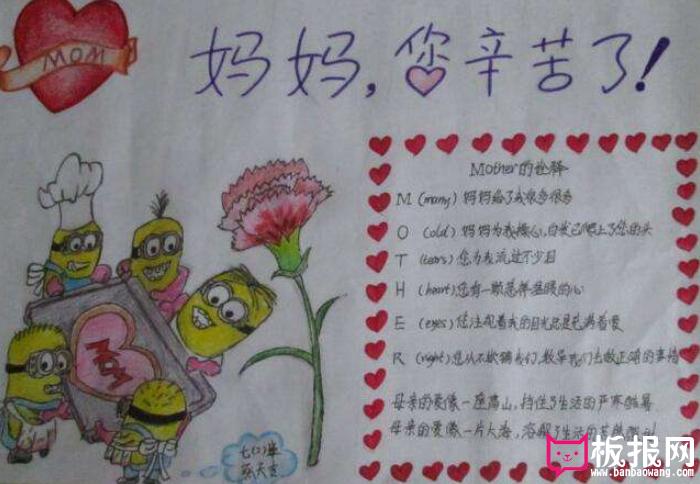 MOM
妈妈,您辛苦了!
Mother的诠释
M (many) 妈妈给了我很多很多
O (old) 妈妈为我操心,白发已爬上了您的头
T (tears) 您为我流过不少泪
H (heart) 您有一颗慈祥温暖的心
E (eyes) 您注视着我的目光总是充满着爱
R (right) 您从不欺骗我们,教导我们去做正确的事情
母亲的爱像一座高山,挡住了生活的严寒酷暑
母亲的爱像一片大海,溶解了生活的苦
MOM
七(2)班
板报网
www.banbaowang.com